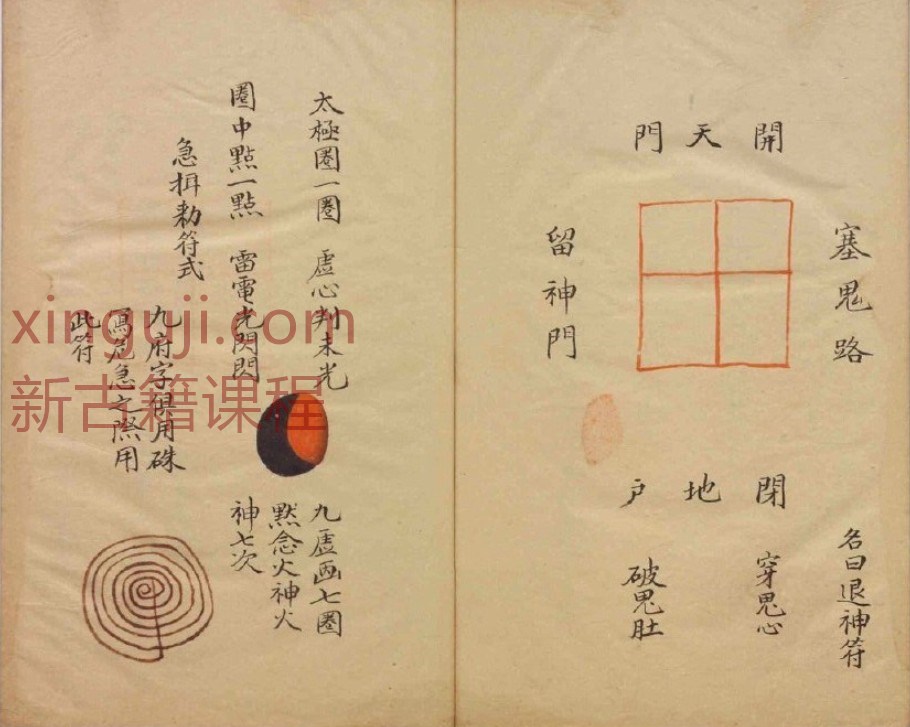 開天門
塞鬼路
留神門
閉地戶
名曰退神符
穿鬼心
破鬼肚
太極圈一圈　虛心判未光
圈中點一點　雷電光閃閃
九虛画七圈
黙念火神火
神七次
急揖勅符式
九府字俱用硃
寫危急之際用
此符
xinguji.com
新古籍课程